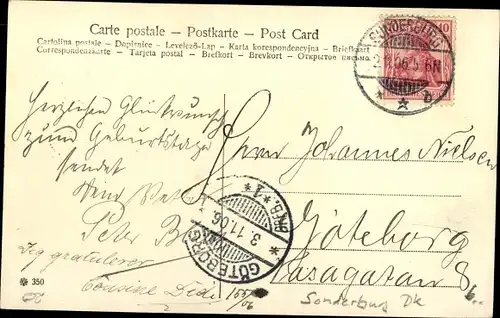 Carte postale - Postkarte - Post Card
Cartolina postale - Dopisnice - Levelező-Lap - Karta korespondencyjna - Briefkaart
Correspondenzkarte - Tarjeta postal - Brefkort - Brevkort - Открытое письмо
SONDERBURG
2.11.06. 5-6N
* * b
10
Herzlichen Glückwunsch
zum Geburtstage
sendet
Dein Vetter
Peter
Jeg gratulerer
Cousine Didi
Herrn Johannes Nielsen
Göteborg
Vasagatan
GÖTEBORG
3.11.06
* 1 *
* 350
Sonderburg Dk